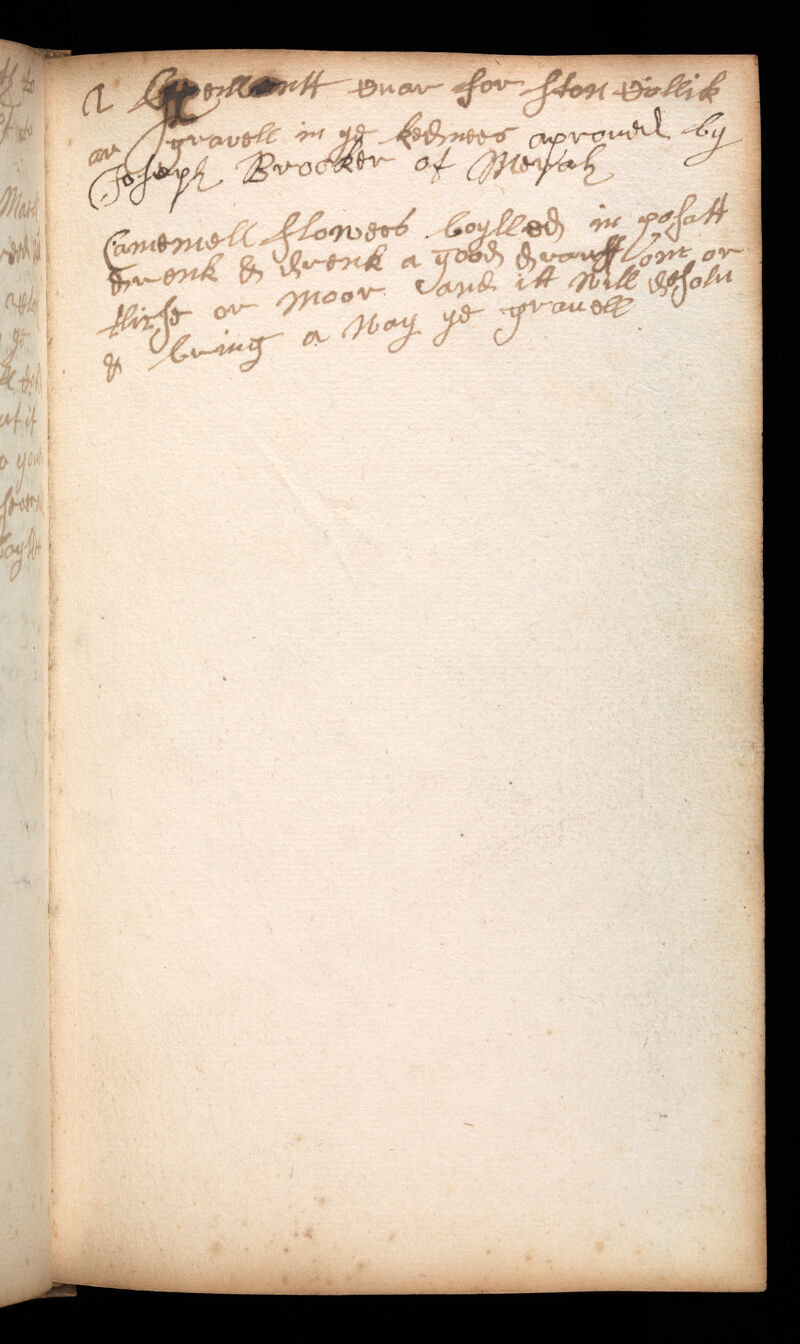 A Exsellentt cuar for ston Collick
or gravell in ye kednees aproued by
Joseph Brooker of
Camemell flowers boylled in posatt
drenk & drenk a good draught onc or
twise or moor and itt will desolu
& bring a way ye gravell